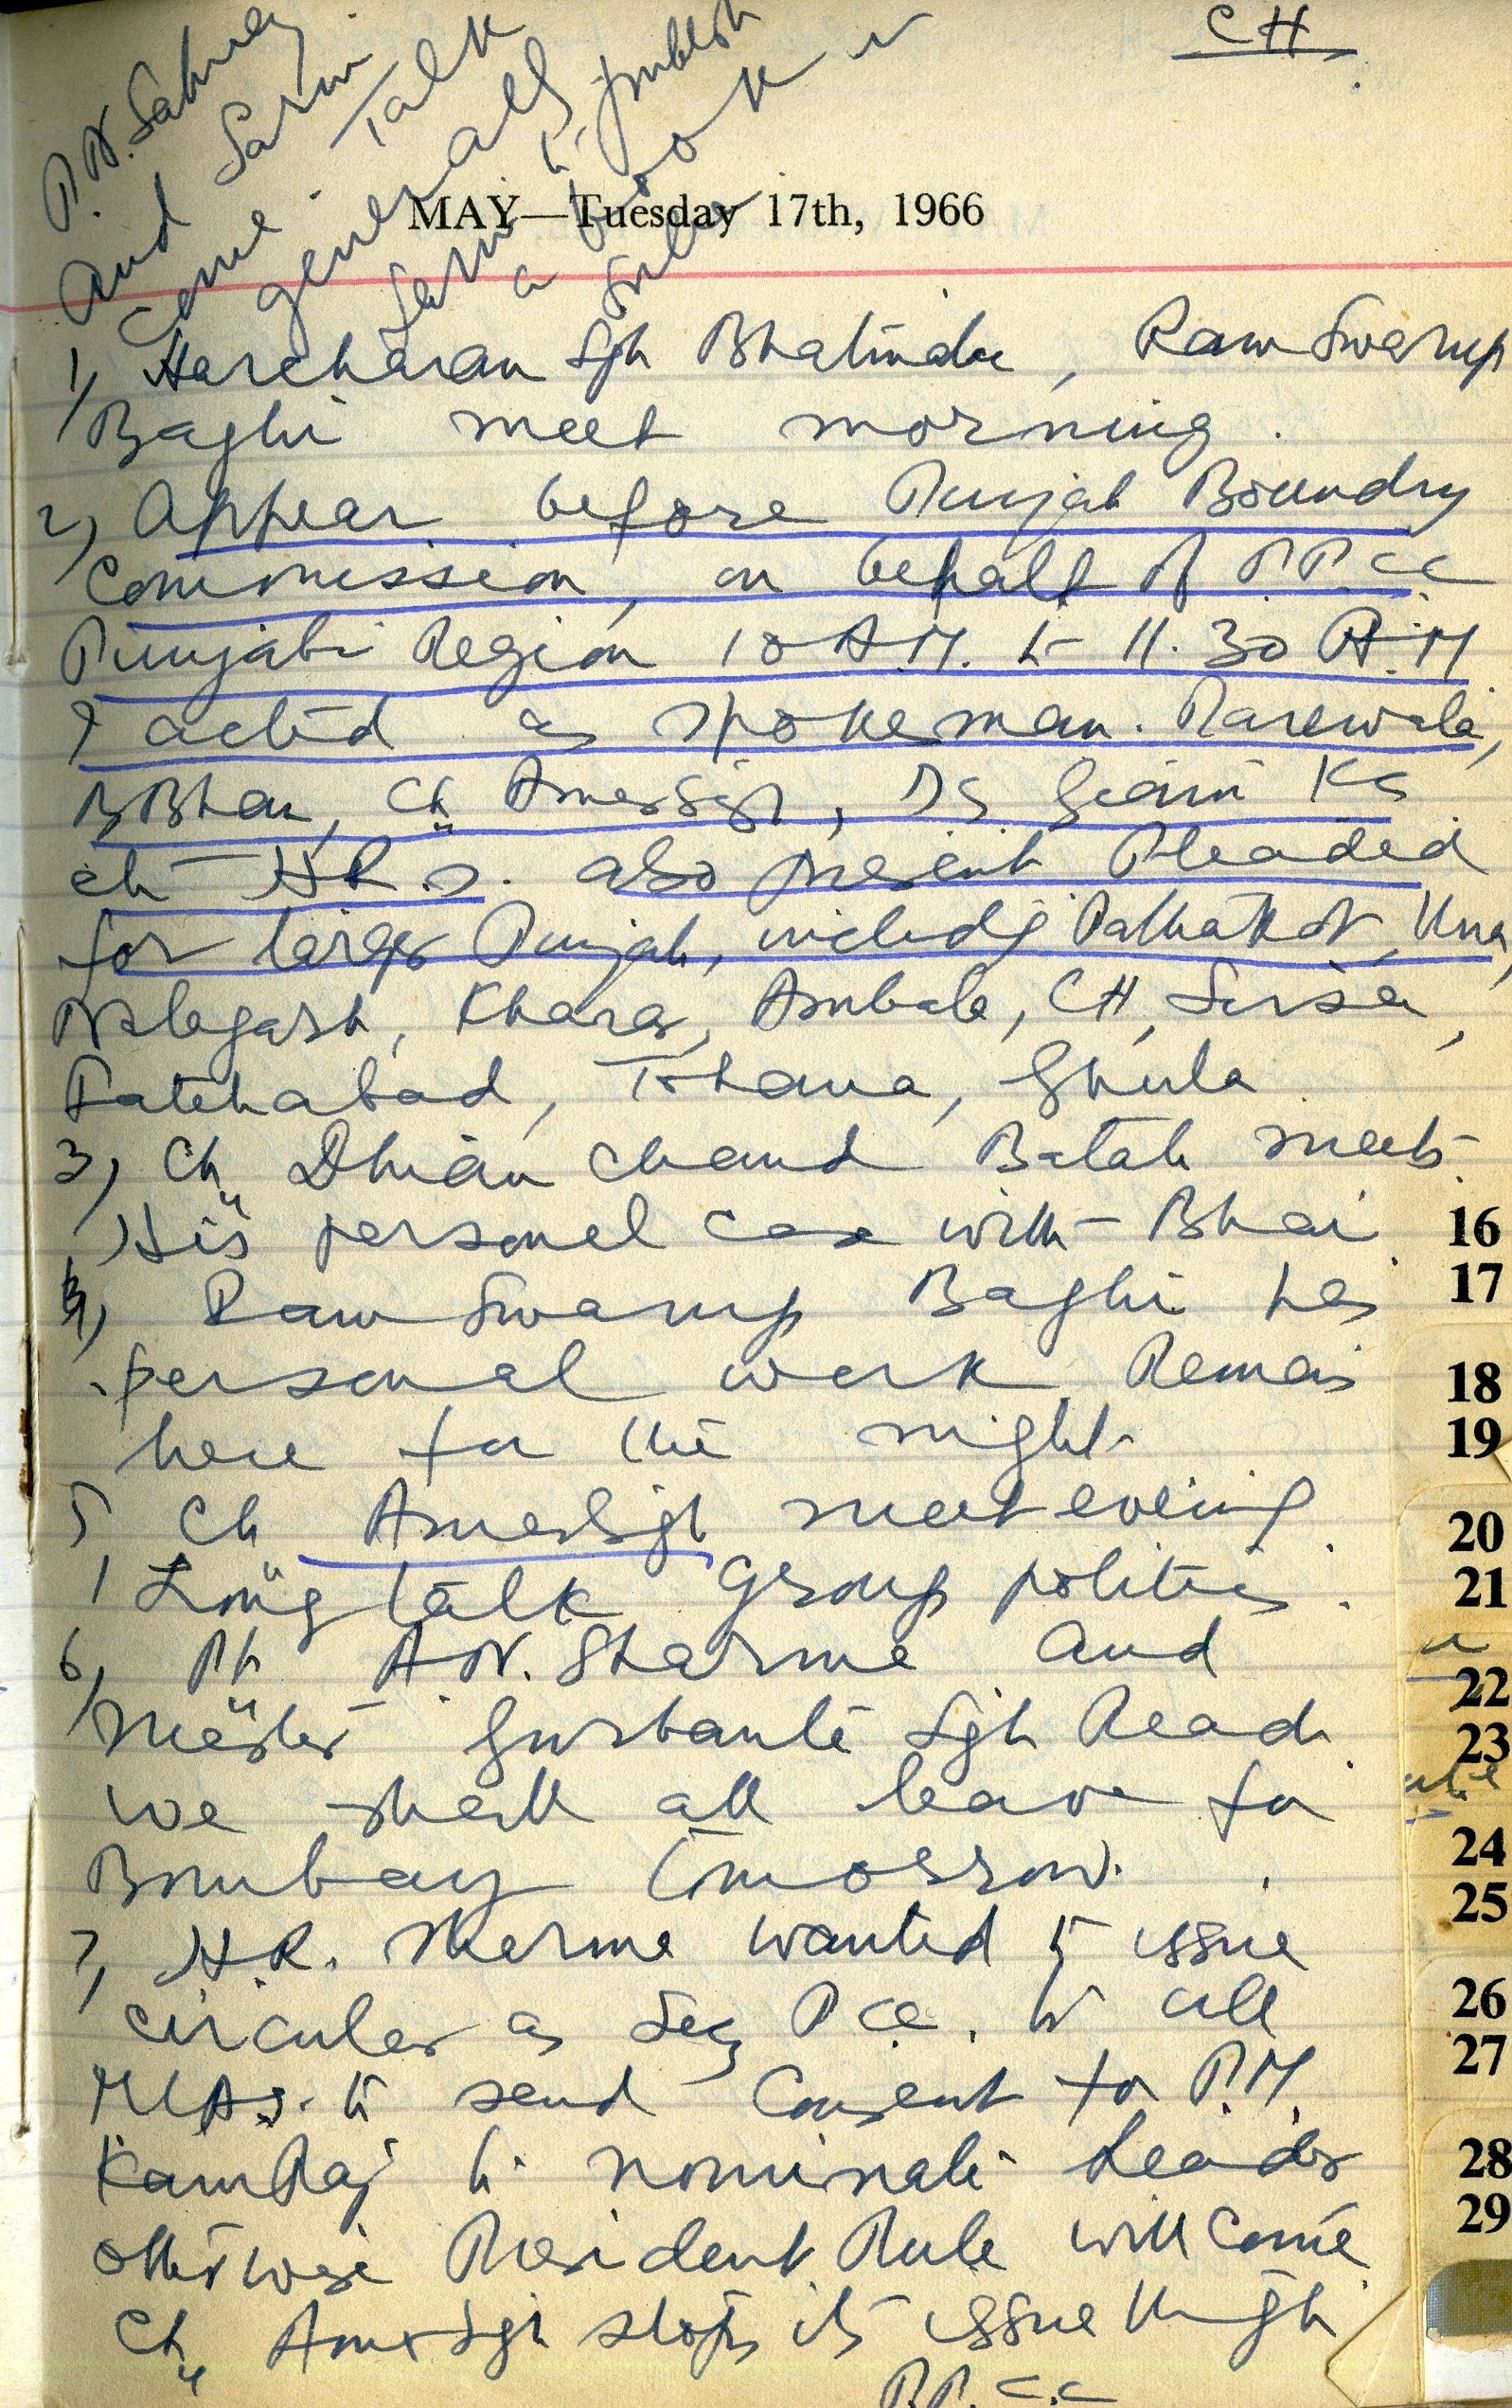 CH
P.N. Sahney
and Sarin
come. Talk
generally
Sarin to publish
a book
MAY—Tuesday 17th, 1966
1) Harcharan Sgh Bhatinda, Ram Swarup
Baghi meet morning.
2) Appear before Punjab Boundry
Commission, on behalf of P.P.CC
Punjabi Region 10 A.M. to 11.30 A.M
I acted as spokesman. Rarewala,
B Bhan, Ch Amar Sigh, DS Giani Ks
ch H.R.S. also present Pleaded
for larger Punjab, includg Pathankot, Una,
Nalagarh, Kharar, Ambala, CH, Sirsa,
Fatehabad, Tohana, Ghula
3) Ch Dhian Chand Batala meets.
His personel case with Bhai
4) Ram Swarup Baghi has
personal work Remais
here for the night
5) Ch AmarSigh meet evening.
Long talk group politics.
6) Pt A.N. Sharma and
Master Gurbanta Sgh Read
we shall all leave for
Bombay tomorrow.
7) H.R. Sharma wanted to issue
circular as Secy P CC. to all
MLAs. to send Consent for P.M.
KamRaj to nominate Leader
otherwise President Rule will come
Ch Amar Sgh stops its issue though
P.P.C.C
16
17
18
19
20
21
22
23
24
25
26
27
28
29